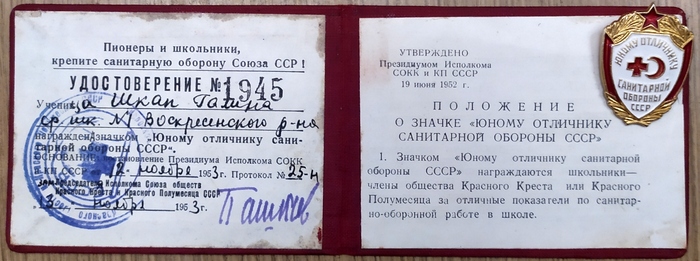 Пионеры и школьники,
крепите санитарную оборону Союза ССР!
УДОСТОВЕРЕНИЕ № 1945
Ученица Шкап Галина
ср. шк. №1 Воскресенского р-на
награжден значком «Юному отличнику сани-
тарной обороны СССР».
ОСНОВАНИЕ: постановление Президиума Исполкома СОКК
и КП СССР 12 ноября 1953г. Протокол № 25-н
зам. Председателя Исполкома Союза обществ
Красного Креста и Красного Полумесяца СССР
13 ноября 1953г.
УТВЕРЖДЕНО
Президиумом Исполкома
СОКК и КП СССР
19 июня 1952 г.
ПОЛОЖЕНИЕ
О ЗНАЧКЕ «ЮНОМУ ОТЛИЧНИКУ
САНИТАРНОЙ ОБОРОНЫ СССР»
1. Значком «Юному отличнику санитарной
обороны СССР» награждаются школьники—
члены общества Красного Креста или Красного
Полумесяца за отличные показатели по санитар-
но-оборонной работе в школе.
ЮНОМУ ОТЛИЧНИКУ
САНИТАРНОЙ
ОБОРОНЫ
СССР